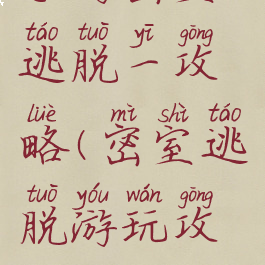 táo tuō yī gōng
逃脱一攻
lüè mì shì táo
略(密室逃
tuō yóu wán gōng
脱游玩攻